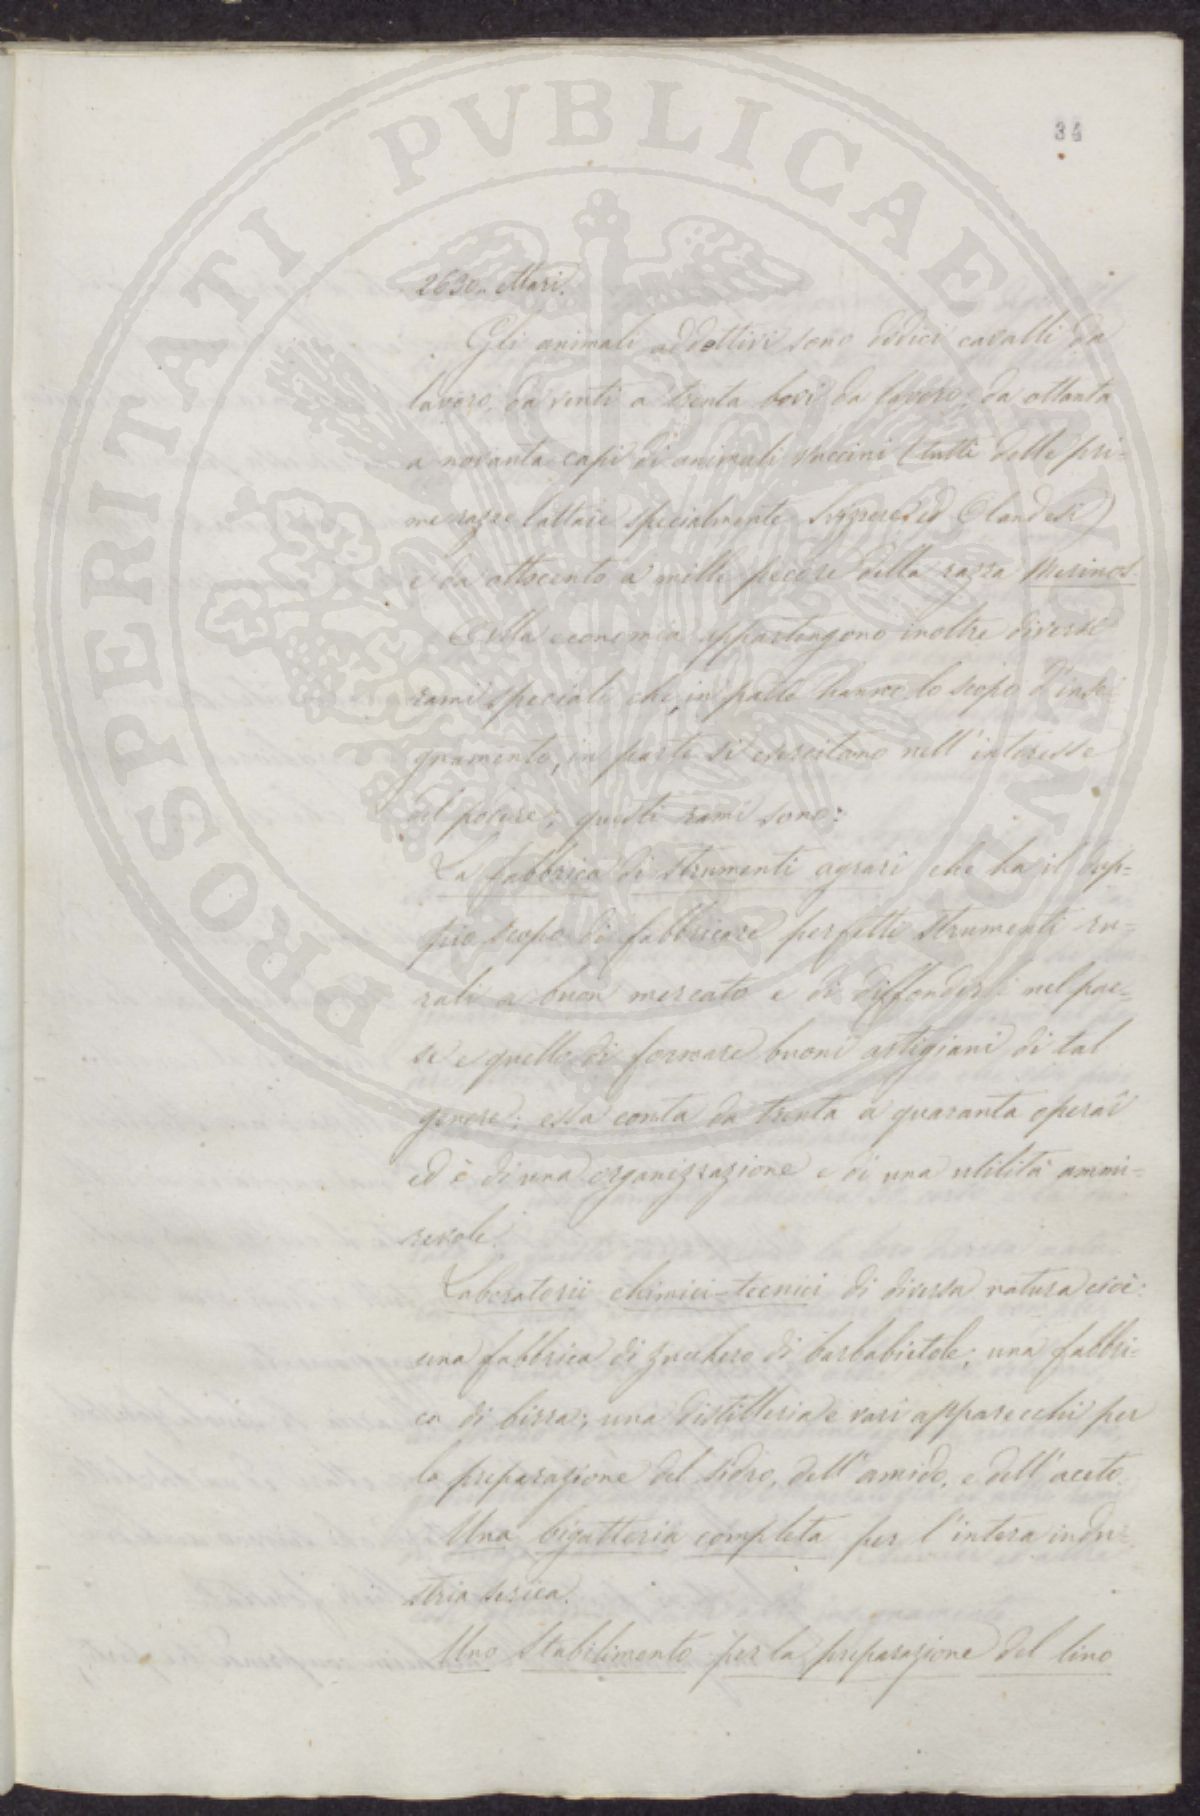 34
2630. ettari.
Gli animali addettivi sono dodici cavalli da
lavoro, da venti a trenta bovi da lavoro, da ottanta
a novanta capi di animali vaccini (tutti delle pri-
me razze lattaie specialmente Svizzere ed Olandesi)
e da ottocento a mille pecore della razza Merinos.
Colla economia appartengono inoltre diversi
rami speciali che, in parte hanno lo scopo d'inse-
gnamento, in parte si esercitano nell'interesse
del podere; questi rami sono:
La fabbrica di strumenti agrari che ha il dop-
pio scopo di fabbricare perfetti strumenti ru-
rali a buon mercato e di diffonderli nel pae-
se e quello di formare buoni artigiani di tal
genere; essa conta da trenta a quaranta operai
ed è di una organizzazione e di una utilità ammi-
revole.
Laboratorii chimici-tecnici di diversa natura cioè:
una fabbrica di zucchero di barbabietole; una fabbri-
ca di birra; una distilleria e vari apparecchi per
la preparazione del sidro, dell'amido, e dell'aceto.
Una bigatteria completa per l'intera indu-
stria serica.
Uno stabilimento per la preparazione del lino
PROSPERITATI PVBLICAE AVGENDAE